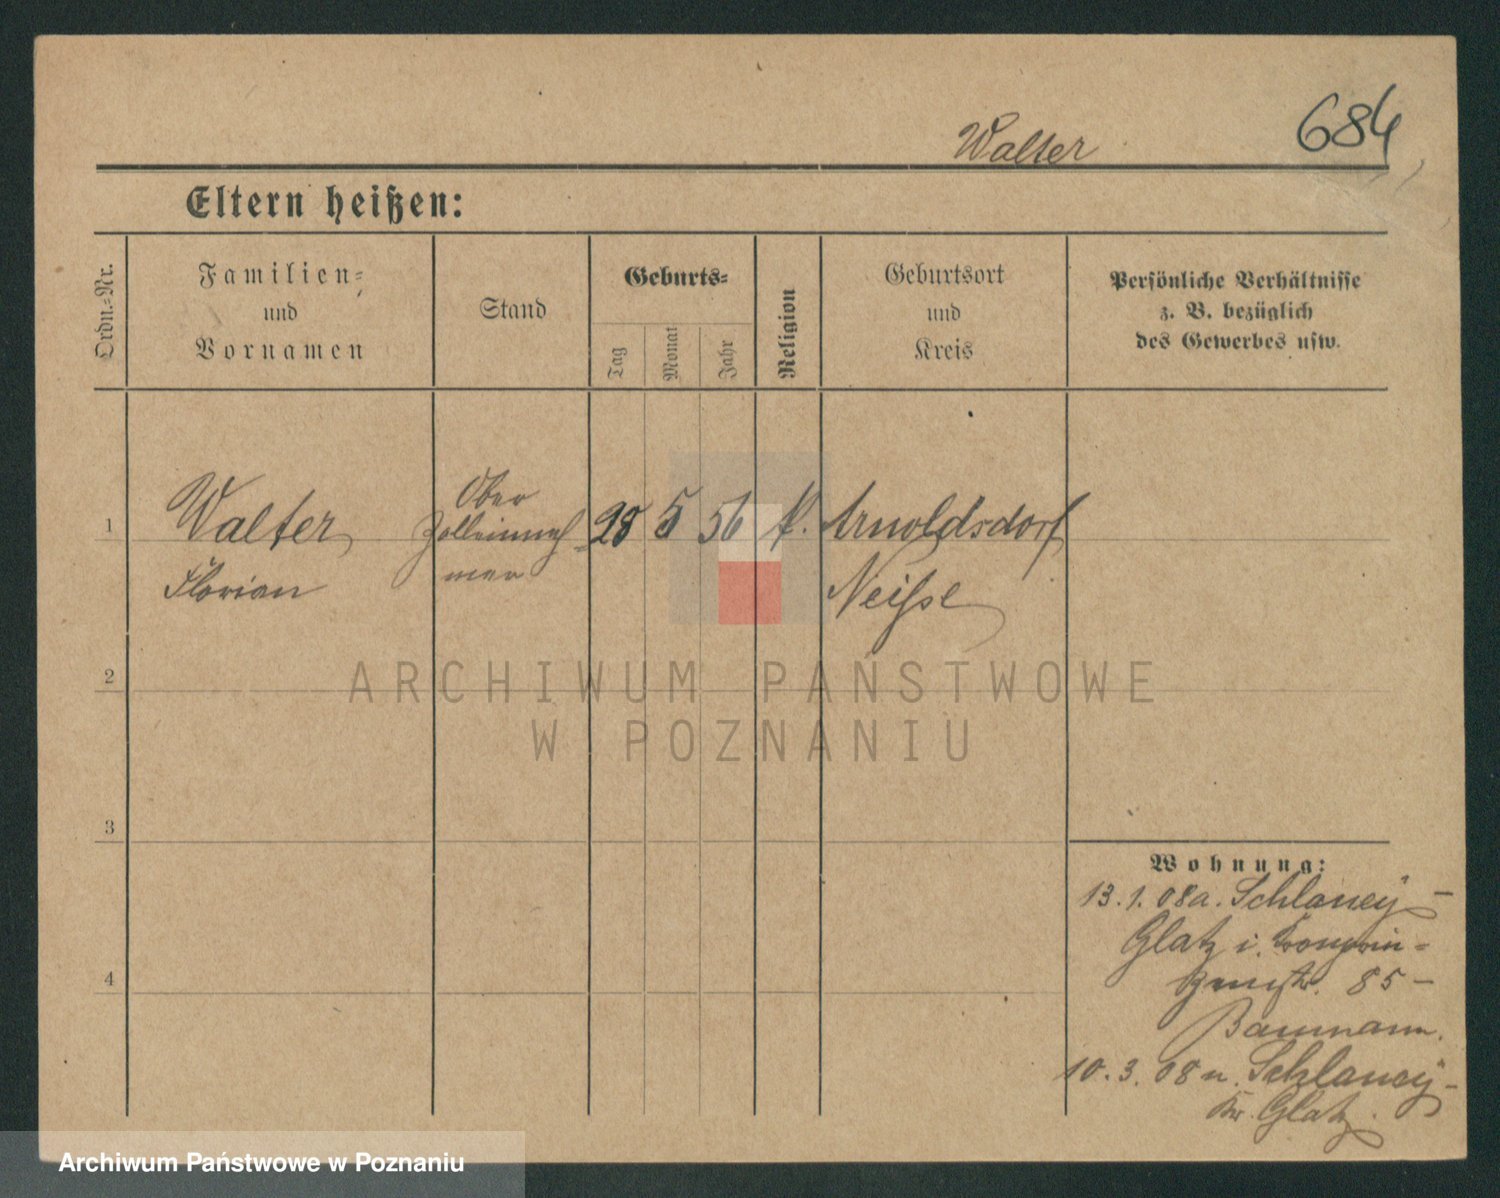 Walter
684
Eltern heißen:
Ordn.-Nr.
Familien-
und
Vornamen
Stand
Geburts-
Tag
Monat
Jahr
Religion
Geburtsort
und
Kreis
Persönliche Verhältnisse
z. B. bezüglich
des Gewerbes usw.
1
Walter
Florian
Ober
Zolleinneh-
mer
28 5 56 k. Arnoldsdorf
Neisse
2
3
4
Wohnung:
13.1.08 a. Schlaney-
Glatz i. Kronprin-
zenstr. 85-
Baumann.
10.3.08 n. Schlaney-
Kr. Glatz.
ARCHIWUM PAŃSTWOWE
W POZNANIU
Archiwum Państwowe w Poznaniu